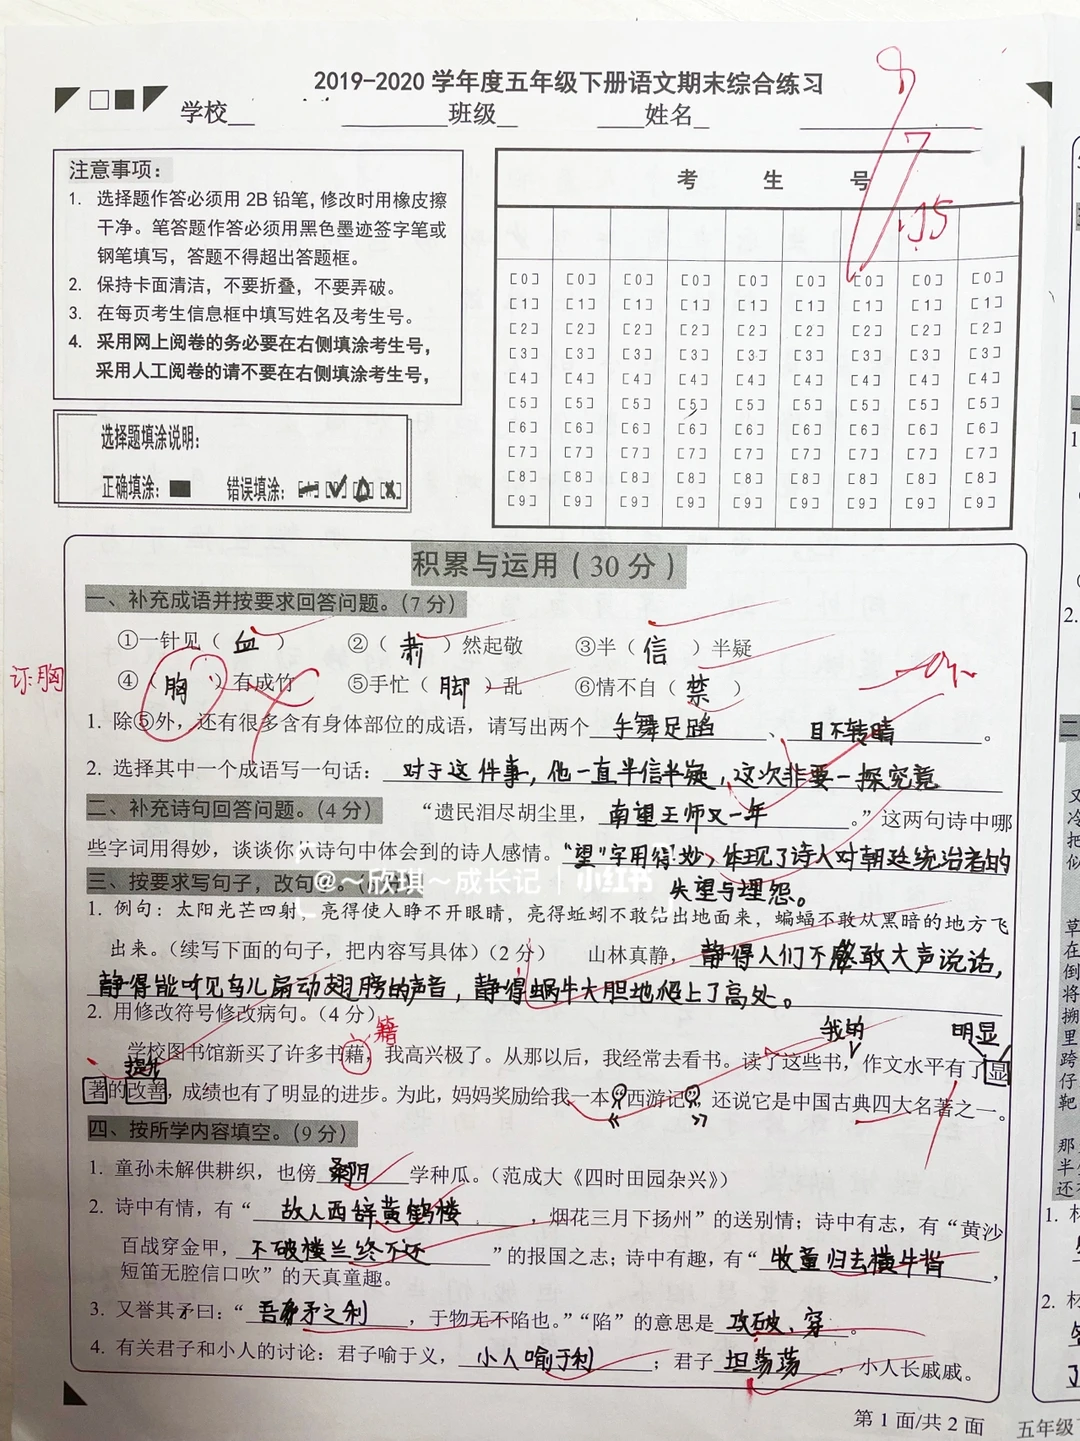 2019-2020 学年度五年级下册语文期末综合练习
学校 班级 姓名
97.75
注意事项：
1. 选择题作答必须用 2B 铅笔，修改时用橡皮擦
干净。笔答题作答必须用黑色墨迹签字笔或
钢笔填写，答题不得超出答题框。
2. 保持卡面清洁，不要折叠，不要弄破。
3. 在每页考生信息框中填写姓名及考生号。
4. 采用网上阅卷的务必要在右侧填涂考生号，
采用人工阅卷的请不要在右侧填涂考生号，
选择题填涂说明：
正确填涂： 错误填涂：
考 生 号
[0] [0] [0] [0] [0] [0] [0] [0] [0]
[1] [1] [1] [1] [1] [1] [1] [1] [1]
[2] [2] [2] [2] [2] [2] [2] [2] [2]
[3] [3] [3] [3] [3] [3] [3] [3] [3]
[4] [4] [4] [4] [4] [4] [4] [4] [4]
[5] [5] [5] [5] [5] [5] [5] [5] [5]
[6] [6] [6] [6] [6] [6] [6] [6] [6]
[7] [7] [7] [7] [7] [7] [7] [7] [7]
[8] [8] [8] [8] [8] [8] [8] [8] [8]
[9] [9] [9] [9] [9] [9] [9] [9] [9]
积累与运用（30 分）
一、补充成语并按要求回答问题。（7 分）
①一针见（ 血 ） ②（ 肃 ）然起敬 ③半（ 信 ）半疑
④（ 胸 ）有成竹 ⑤手忙（ 脚 ）乱 ⑥情不自（ 禁 ）
订:胸
1. 除⑤外，还有很多含有身体部位的成语，请写出两个 手舞足蹈 、 目不转睛 。
2. 选择其中一个成语写一句话： 对于这件事，他一直半信半疑，这次非要一探究竟
二、补充诗句回答问题。（4 分） “遗民泪尽胡尘里， 南望王师又一年 。”这两句诗中哪
些字词用得妙，谈谈你从诗句中体会到的诗人感情。“望”字用得妙，体现了诗人对朝廷统治者的
失望与埋怨。
三、按要求写句子，改句
@～欣琪～成长记 | 小红书
1. 例句：太阳光芒四射，亮得使人睁不开眼睛，亮得蚯蚓不敢钻出地面来，蝙蝠不敢从黑暗的地方飞
出来。（续写下面的句子，把内容写具体）（2 分） 山林真静， 静得人们不敢大声说话，
静得能听见鸟儿扇动翅膀的声音，静得蜗牛大胆地爬上了高处。
2. 用修改符号修改病句。（4 分）
籍 我的 明显
学校图书馆新买了许多书藉，我高兴极了。从那以后，我经常去看书。读了这些书，作文水平有了显
提升
著的改善，成绩也有了明显的进步。为此，妈妈奖励给我一本 西游记 ，还说它是中国古典四大名著之一。
《 》
四、按所学内容填空。（9 分）
1. 童孙未解供耕织，也傍 桑阴 学种瓜。（范成大《四时田园杂兴》）
2. 诗中有情，有“ 故人西辞黄鹤楼 ，烟花三月下扬州”的送别情；诗中有志，有“黄沙
百战穿金甲， 不破楼兰终不还 ”的报国之志；诗中有趣，有“ 牧童归去横牛背 ，
短笛无腔信口吹”的天真童趣。
3. 又誉其矛曰：“ 吾矛之利 ，于物无不陷也。”“陷”的意思是 攻破、穿 。
4. 有关君子和小人的讨论：君子喻于义， 小人喻于利 ；君子 坦荡荡 ，小人长戚戚。
第 1 面/共 2 面
五年级